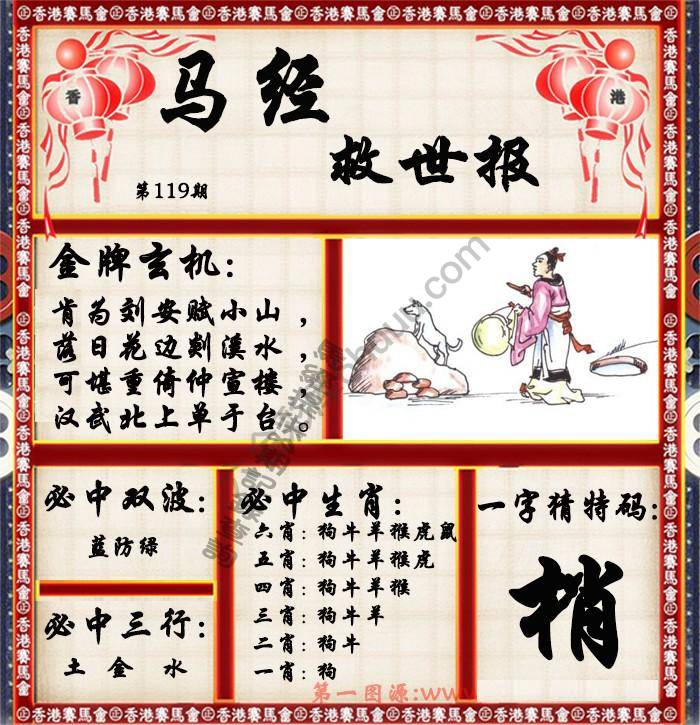 香港賽馬會㊣香港賽馬會㊣香港賽馬會㊣香港賽馬會㊣香港賽馬會㊣香港賽馬會
香
港
马经
救世报
第119期
金牌玄机:
肯为刘安赋小山,
落日花边剡溪水,
可堪重倚仲宣楼,
汉武北上单于台。
必中双波:
蓝防绿
必中三行:
土 金 水
必中生肖:
六肖:狗牛羊猴虎鼠
五肖:狗牛羊猴虎
四肖:狗牛羊猴
三肖:狗牛羊
二肖:狗牛
一肖:狗
一字猜特码:
梢
第一图源:www